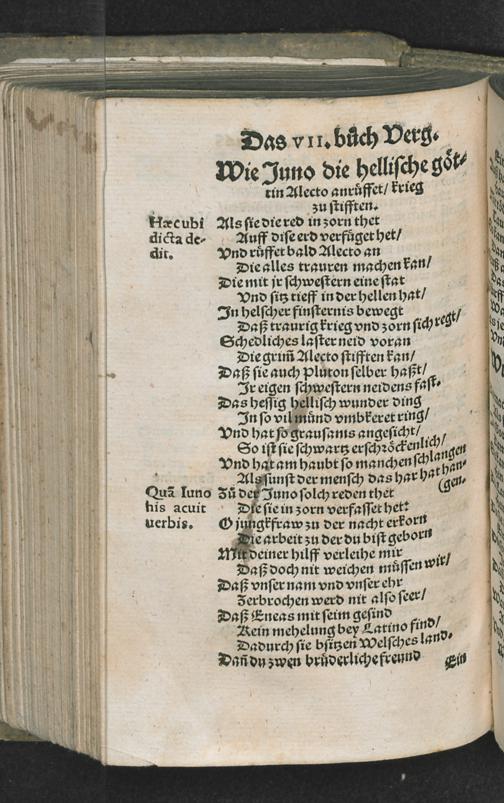 Das VII. bůch Verg.
Wie Juno die hellische göt-
tin Alecto anrůffet/ krieg
zu stifften.
Hæc ubi
dicta de-
dit.
Als sie die red in zorn thet
Auff dise erd verfüget het/
Vnd růffet bald Alecto an
Die alles trauren machen kan/
Die mit jr schwestern eine stat
Vnd sitz tieff in der hellen hat/
In helscher finsternis bewegt
Daß traurig krieg vnd zorn sich regt/
Schedliches laster neid voran
Die grim̃ Alecto stifften kan/
Daß sie auch Pluton selber haßt/
Ir eigen schwestern neidens fast.
Das hessig hellisch wunder ding
In so vil münd vmbkeret ring/
Vnd hat so grausams angesicht/
So ist sie schwartz erschröckenlich/
Vnd hat am haubt so manchen schlangen
Als sunst der mensch das har hat han-
(gen.
Quã Iuno
his acuit
uerbis.
Zů der Juno solch reden thet
Die sie in zorn verfasset het:
O jungkfraw zu der nacht erkorn
Die arbeit zu der du bist geborn
Mit deiner hilff verleihe mir
Daß doch nit weichen müssen wir/
Daß vnser nam vnd vnser ehr
Zerbrochen werd nit also seer/
Daß Eneas mit seim gesind
Kein mehelung bey Latino find/
Dadurch sie bsitzen Welsches land.
Dañ du zwen brüderliche freund
Ein